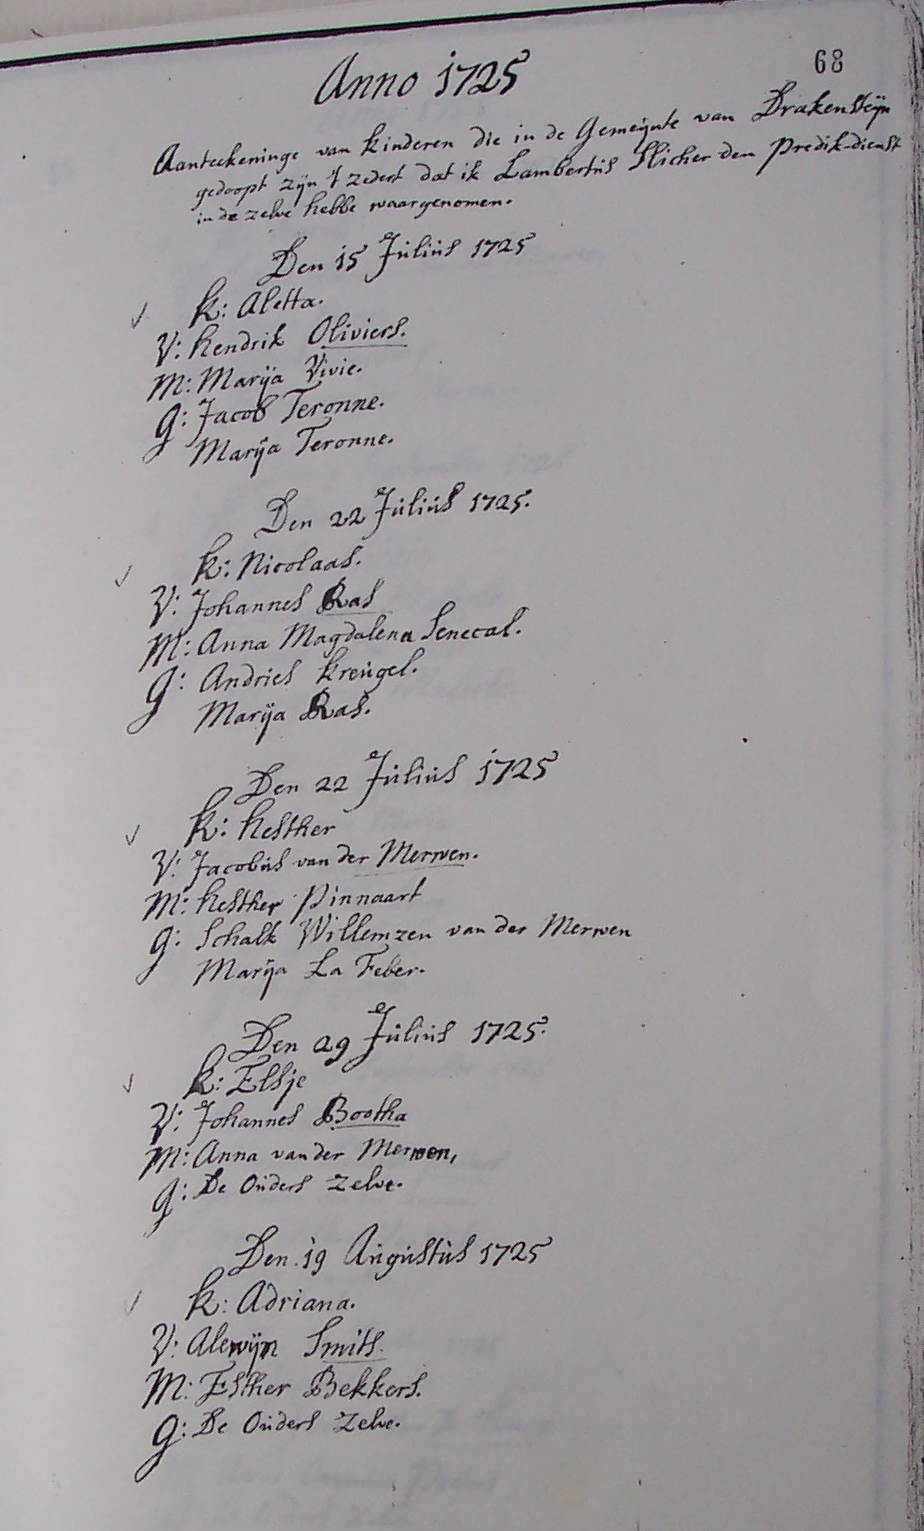 68
Anno 1725
Aanteekeninge van kinderen die in de Gemeijnte van Drakensteijn
gedoopt zijn 't zedert dat ik Lambertus Slicher den Predik-dienst
in de zelve hebbe waargenomen.
Den 15 Julius 1725
K: Aletta.
V: Hendrik Oliviers.
M: Marija Vivie.
G: Jacob Teronne.
Marija Teronne.
Den 22 Julius 1725.
K: Nicolaas.
V: Johannes Ras
M: Anna Magdalena Senecal.
G: Andries Kreugel.
Marija Ras.
Den 22 Julius 1725
K: Hesther
V: Jacobus van der Merwen.
M: Hesther Pinnaart
G: Schalk Willemzen van der Merwen
Marija La Feber.
Den 29 Julius 1725.
K: Elsje
V: Johannes Bootha
M: Anna van der Merwen,
G: De Ouders zelve.
Den 19 Augustus 1725
K: Adriana.
V: Alewijn Smits.
M: Esther Bekkers.
G: De Ouders zelve.